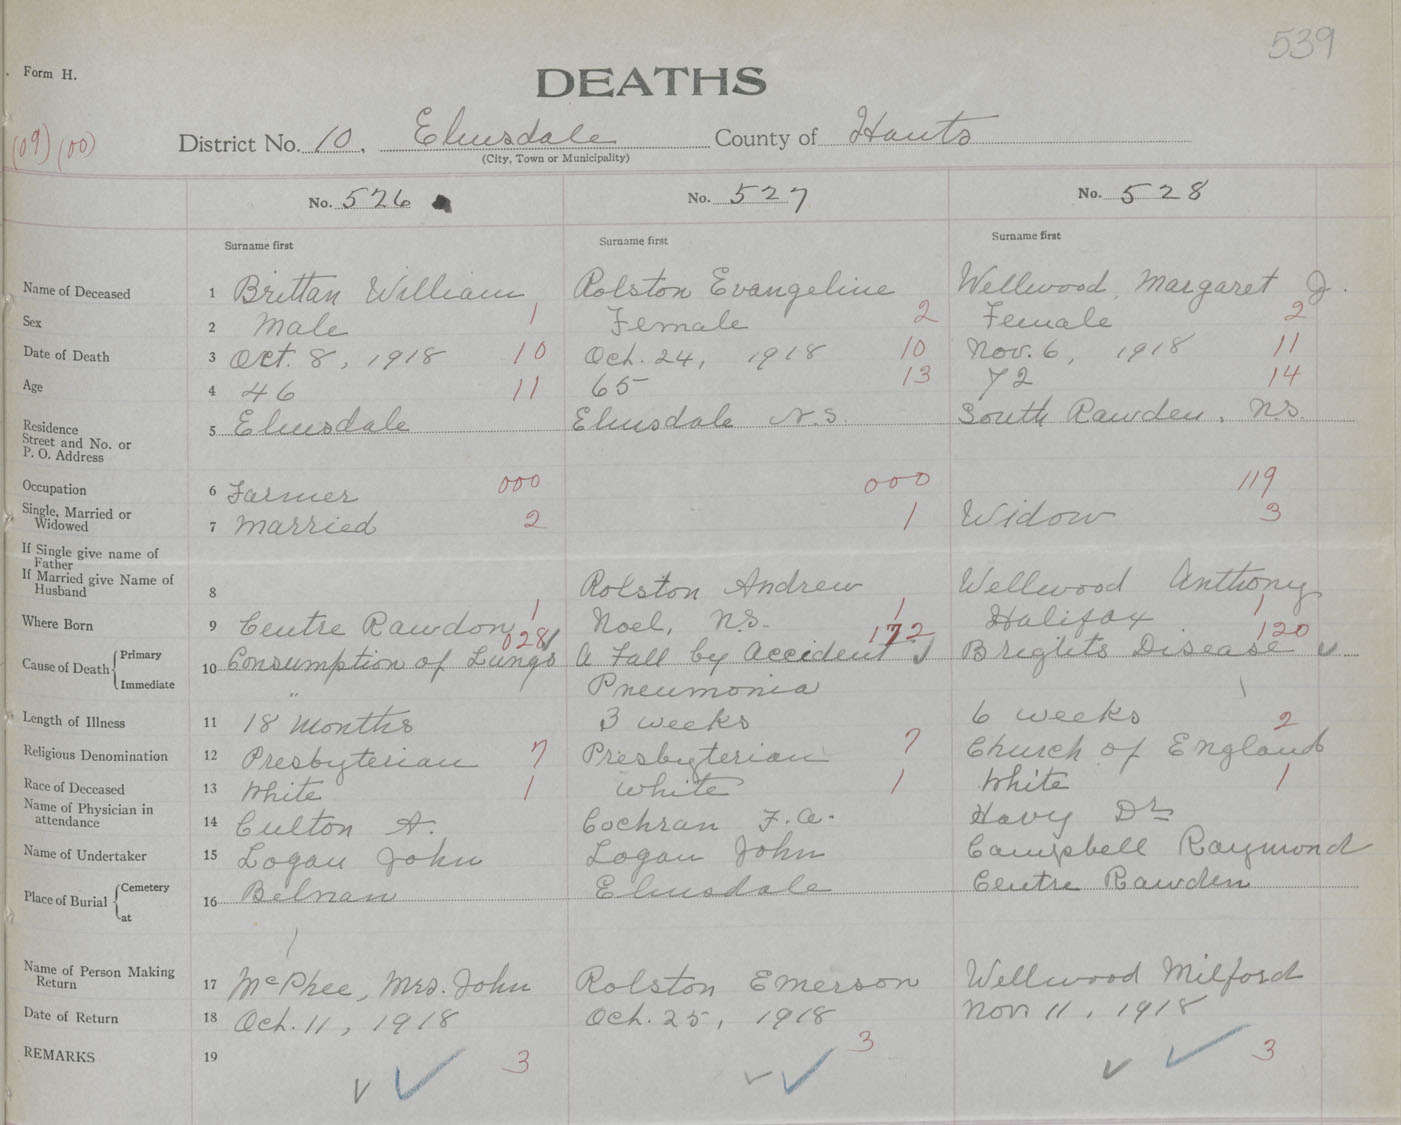 539
Form H.
DEATHS
(09) (00)
District No. 10, Elmsdale County of Hants
(City, Town or Municipality)
No. 526 No. 527 No. 528
Surname first Surname first Surname first
Name of Deceased 1 Brittan William Rolston Evangeline Wellwood, Margaret J.
Sex 2 Male 1 Female 2 Female 2
Date of Death 3 Oct. 8, 1918 10 Oct. 24, 1918 10 Nov. 6, 1918 11
Age 4 46 11 65 13 72 14
Residence
Street and No. or
P. O. Address
5 Elmsdale Elmsdale N.S. South Rawden, N.S.
Occupation 6 Farmer 000 000 119
Single, Married or
Widowed 7 Married 2 1 Widow 3
If Single give name of
Father
If Married give Name of
Husband 8 Rolston Andrew Wellwood Anthony
Where Born 9 Centre Rawdon 1 Noel, N.S. 1 Halifax 1
028 172 120
Cause of Death Primary 10 Consumption of Lungs A Fall by Accident Brights Disease
Immediate " Pneumonia
Length of Illness 11 18 Months 3 weeks 6 weeks
Religious Denomination 12 Presbyterian 7 Presbyterian 7 Church of England 2
Race of Deceased 13 White 1 white 1 White 1
Name of Physician in
attendance 14 Culton A. Cochran F. A. Havy Dr
Name of Undertaker 15 Logan John Logan John Campbell Raymond
Place of Burial Cemetery
at
16 Belnan Elmsdale Centre Rawden
Name of Person Making
Return 17 McPhee, Mrs. John Rolston Emerson Wellwood Milford
Date of Return 18 Oct. 11, 1918 Oct. 25, 1918 Nov 11, 1918
REMARKS 19 3 3 3